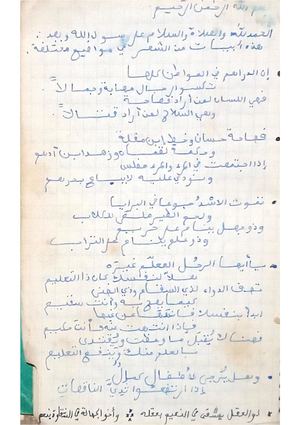 بسم الله الرحمن الرحيم
الحمد لله والصلاة والسلام على رسول الله وبعد:
هذه أبيات من الشعر في مواضيع مختلفة
إن الدراهم في المواطن كلها
تكسو الرجال مهابة وجمالاً
فهي اللسان لمن أراد فصاحة
وهي السلاح لمن أراد قتالاً
فصاحة حسان وخط ابن مقلة
وحكمة لقمان وزهد ابن أدهم
إذا اجتمعت في المرء والمرء مفلس
ونودي عليه لا يباع بدرهم
تموت الأسد جوعا في البرايا
ولحم الطير ملقى للكلاب
وذو جهل ينام على حرير
وذو علم ينام على التراب
يا أيها الرجل المعلم غيره
هلا لنفسك كان ذا التعليم
تصف الدواء لذي السقام وذي الضنى
كيما يصح به وأنت سقيم
ابدأ بنفسك فانهها عن غيها
فإذا انتهت منه فأنت حكيم
فهناك يقبل ما وعظت ويقتدى
بالعلم منك وينفع التعليم
وهل يرجى لأطفال كمال
إذا ارتضعوا ثدي الناقصات
ذو العقل يشقى في النعيم بعقله وأخو الجهالة في الشقاوة ينعم